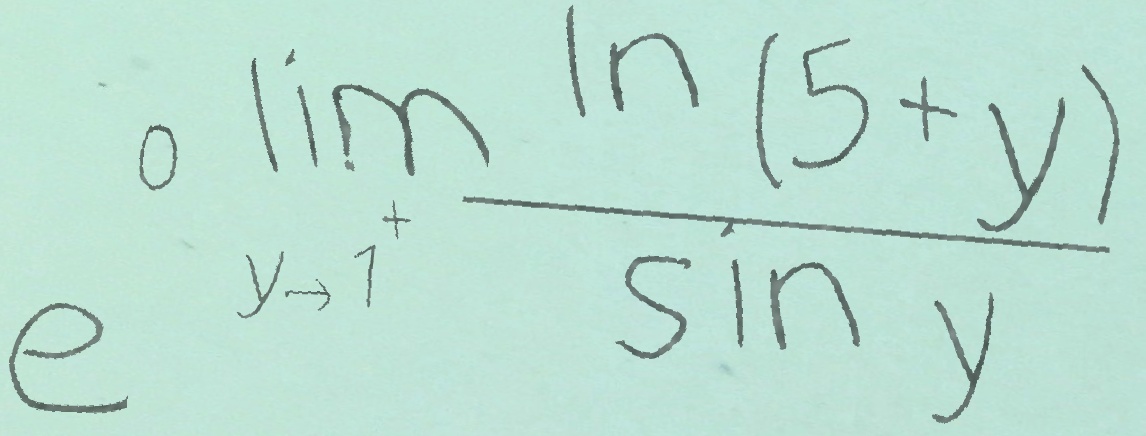 e^{0 \lim_{y \to 1^+} \frac{\ln (5+y)}{\sin y}}